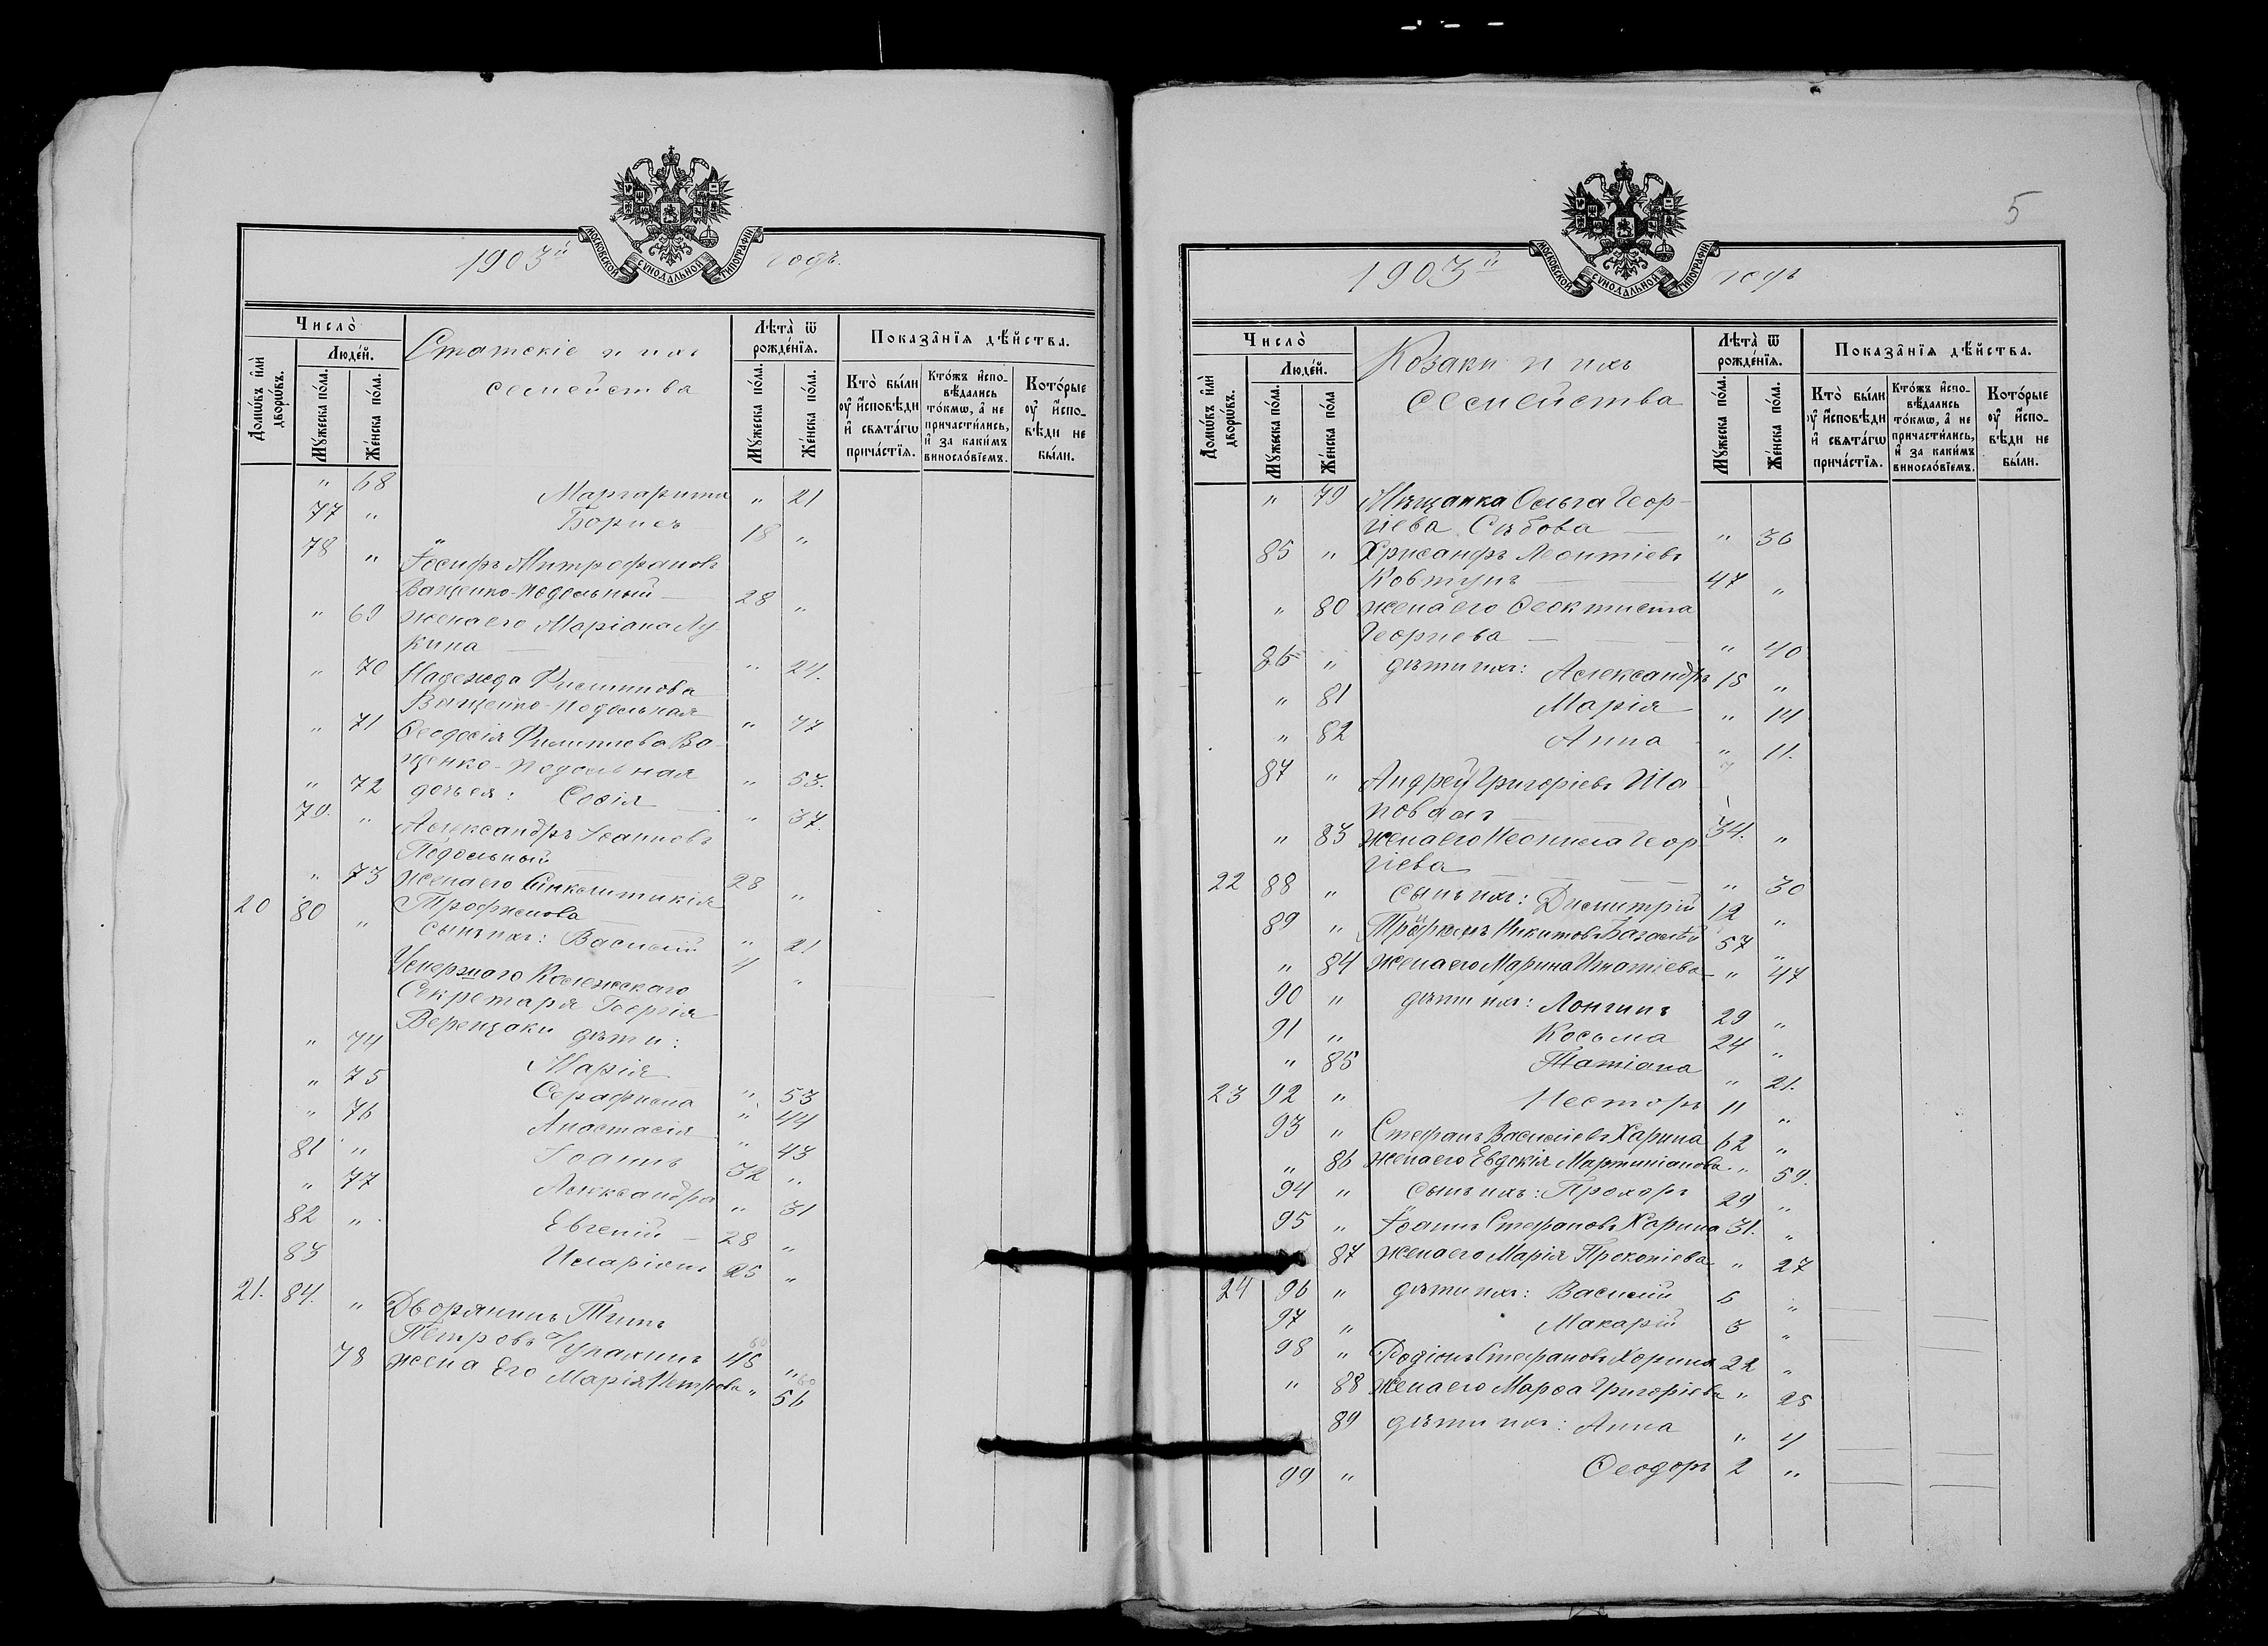 МОСКОВСКОЙ СѴНОДАЛЬНОЙ ТИПОГРАФІИ
1903й годъ.
Число̀
Домѡ́въ и҆лѝ дворѡ́въ.
Люде́й.
Мꙋ́жеска по́ла.
Же́нска по́ла.
Статскіе и ихъ
семейства
Лѣта̀ ѿ рожде́нїѧ.
Мꙋ́жеска по́ла.
Же́нска по́ла.
Показа̑нїѧ дѣ́йства.
Кто̀ бы́ли
оу҆ и҆сповѣ́ди
и҆ свѧта́гѡ
прича́стїѧ.
Кто́жъ и҆спо-
вѣ́дались
то́кмѡ, а҆ не
причасти́лись,
и҆ за каки́мъ
виносло́вїемъ.
Кото́рые
оу҆ и҆спо-
вѣ́ди не
бы́ли.
" 68 Маргарита " 21
77 " Борисъ 18 "
78 " Іосифъ Митрофановъ
Ващенко-Подольный 28 "
" 69 жена его Маріана Лу-
кина " 24.
" 70 Надежда Филиппова
Ващенко-Подольная " 47
" 71 Ѳеодосія Филиппова Ва-
щенко-Подольная " 53.
" 72 дочь ея: Софія " 37.
79. " Александръ Іоанновъ
Подольный 28 "
" 73 жена его Синклитикія
Трофимова " 21
20 80 " сынъ ихъ: Василій 4 "
Умершаго Коллежскаго
Секретаря Георгія
Верещаки дѣти:
" 74 Марія " 53
" 75 Серафима " 44
" 76 Анастасія " 43
81 " Іоаннъ 32 "
" 77 Александра " 31
82 " Евгеній 28 "
83 Иларіонъ 25 "
21. 84. " Дворянинъ Титъ
Петровъ 45 "
78 жена Его Марія Петрова " 56
5
МОСКОВСКОЙ СѴНОДАЛЬНОЙ ТИПОГРАФІИ
1903й годъ
Число̀
Домѡ́въ и҆лѝ дворѡ́въ.
Люде́й.
Мꙋ́жеска по́ла.
Же́нска по́ла
Козаки и ихъ
семейства
Лѣта̀ ѿ рожде́нїѧ.
Мꙋ́жеска по́ла.
Же́нска по́ла.
Показа̑нїѧ дѣ́йства.
Кто̀ бы́ли
оу҆ и҆сповѣ́ди
и҆ свѧта́гѡ
прича́стїѧ.
Кто́жъ и҆спо-
вѣ́дались
то́кмѡ, а҆ не
причасти́лись,
и҆ за каки́мъ
виносло́вїемъ.
Кото́рые
оу҆ и҆спо-
вѣ́ди не
бы́ли.
" 79 Мѣщанка Ольга Геор-
гіева " 36
85 " Хрисанфъ Леонтіевъ
Ковтунъ 47 "
" 80 жена его Ѳеоктиста
Георгіева " 40
86 " дѣти ихъ: Александръ 15 "
" 81 Марія " 14
" 82 Анна " 11.
87 " Андрей Григоріевъ Ша-
повалъ 34. "
" 83 жена его Неонила Геор-
гіева " 30
22 88 " сынъ ихъ: Димитрій 12 "
89 " Никитовъ 57 "
" 84 жена его Марина Игнатіева " 47
90 " дѣти ихъ: Лонгинъ 29 "
91 " Косьма 24 "
" 85 Татіана " 21.
23 92 " Несторъ 11 "
93 " Стефанъ Васильевъ Харина 62 "
" 86 жена его Евдокія Мартиніанова " 59.
94 " сынъ ихъ: Прохоръ 29 "
95 " Іоаннъ Стефановъ Харина 31. "
87 жена его Марія Прокопіева " 27
24 96 " дѣти ихъ: Василій 6 "
97 " Макарій 3 "
98 " Родіонъ Стефановъ Харина 22 "
" 88 жена его Марѳа Григоріева " 25
89 дѣти ихъ: Анна " 4
99 " Ѳеодоръ 2 "